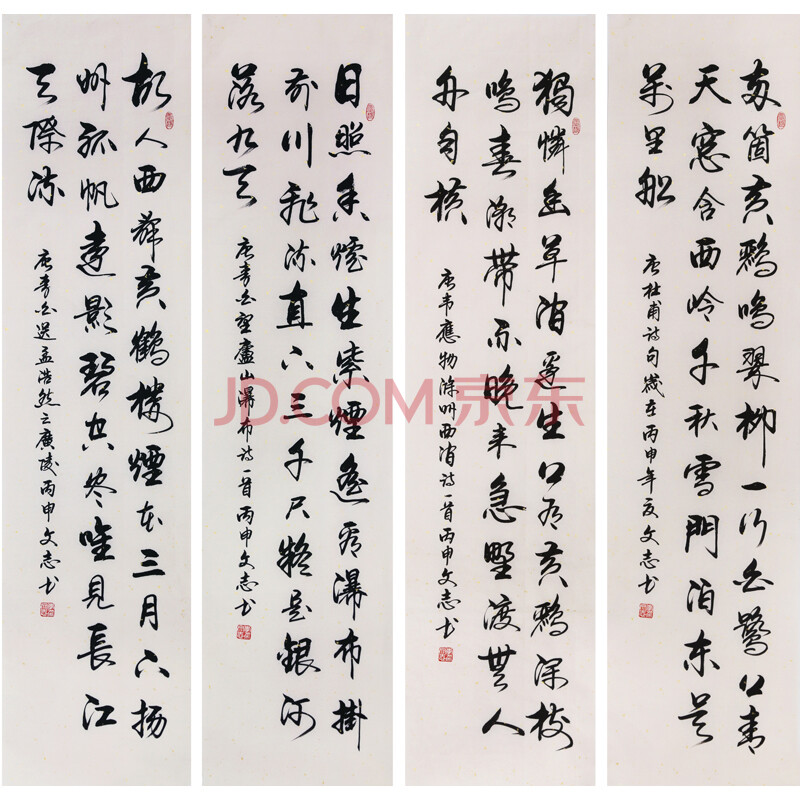 兩箇黃鸝鳴翠柳一行白鷺上青
天窓含西岭千秋雪門泊東吳
萬里船
唐杜甫詩句歲在丙申年夏文志书
獨憐幽草澗邊生上有黃鸝深樹
鳴春潮帶雨晚来急野渡無人
舟自横
唐韋應物滁州西澗詩一首丙申文志书
日照香爐生紫煙遙看瀑布掛
前川飛流直下三千尺疑是銀河
落九天
唐李白望廬山瀑布詩一首丙申文志书
故人西辭黃鶴樓煙花三月下揚
州孤帆遠影碧空盡唯見長江
天際流
唐李白送孟浩然之廣陵丙申文志书
JD.COM 京东